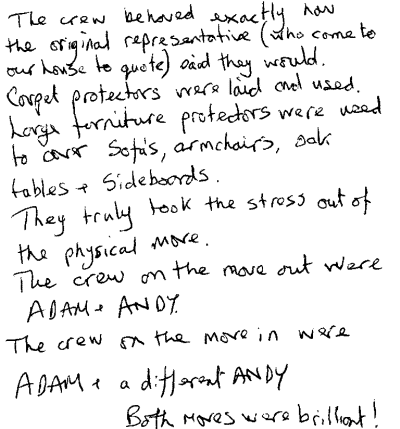 The crew behaved exactly how
the original representative (who come to
our house to quote) said they would.
Carpet protectors were laid and used.
Large furniture protectors were used
to cover Sofa's, armchairs, oak
tables + Sideboards.
They truly took the stress out of
the physical move.
The crew on the move out were
ADAM + ANDY.
The crew on the move in were
ADAM + a different ANDY
Both moves were brilliant!